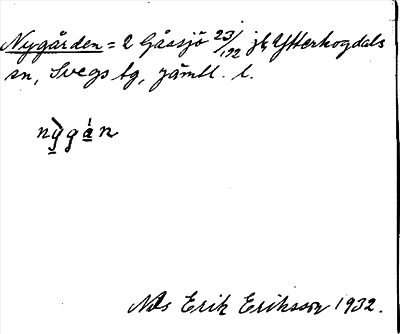 Nygården = 2 Gåssjö 23/192 jb Ytterhogdals
sn, Svegs tg, Jämtl. l.
nỳgá̱n
Nils Erik Eriksson 1932.